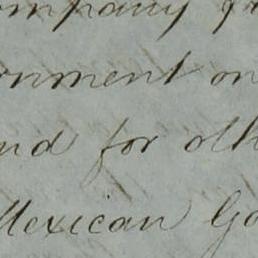 ompany f
ernment on
and for oth
Mexican Go